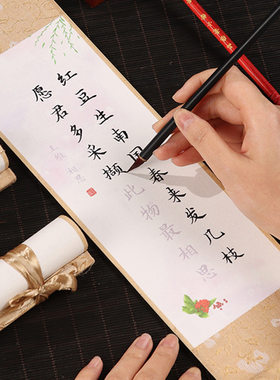 红豆生南国春来发几枝
愿君多采撷此物最相思
王维 相思